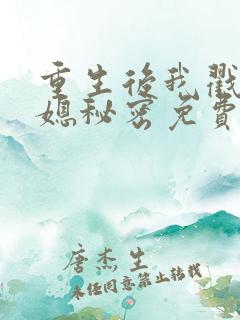 重生後我戳
媳秘密免費
唐杰生
未任同意禁止转载